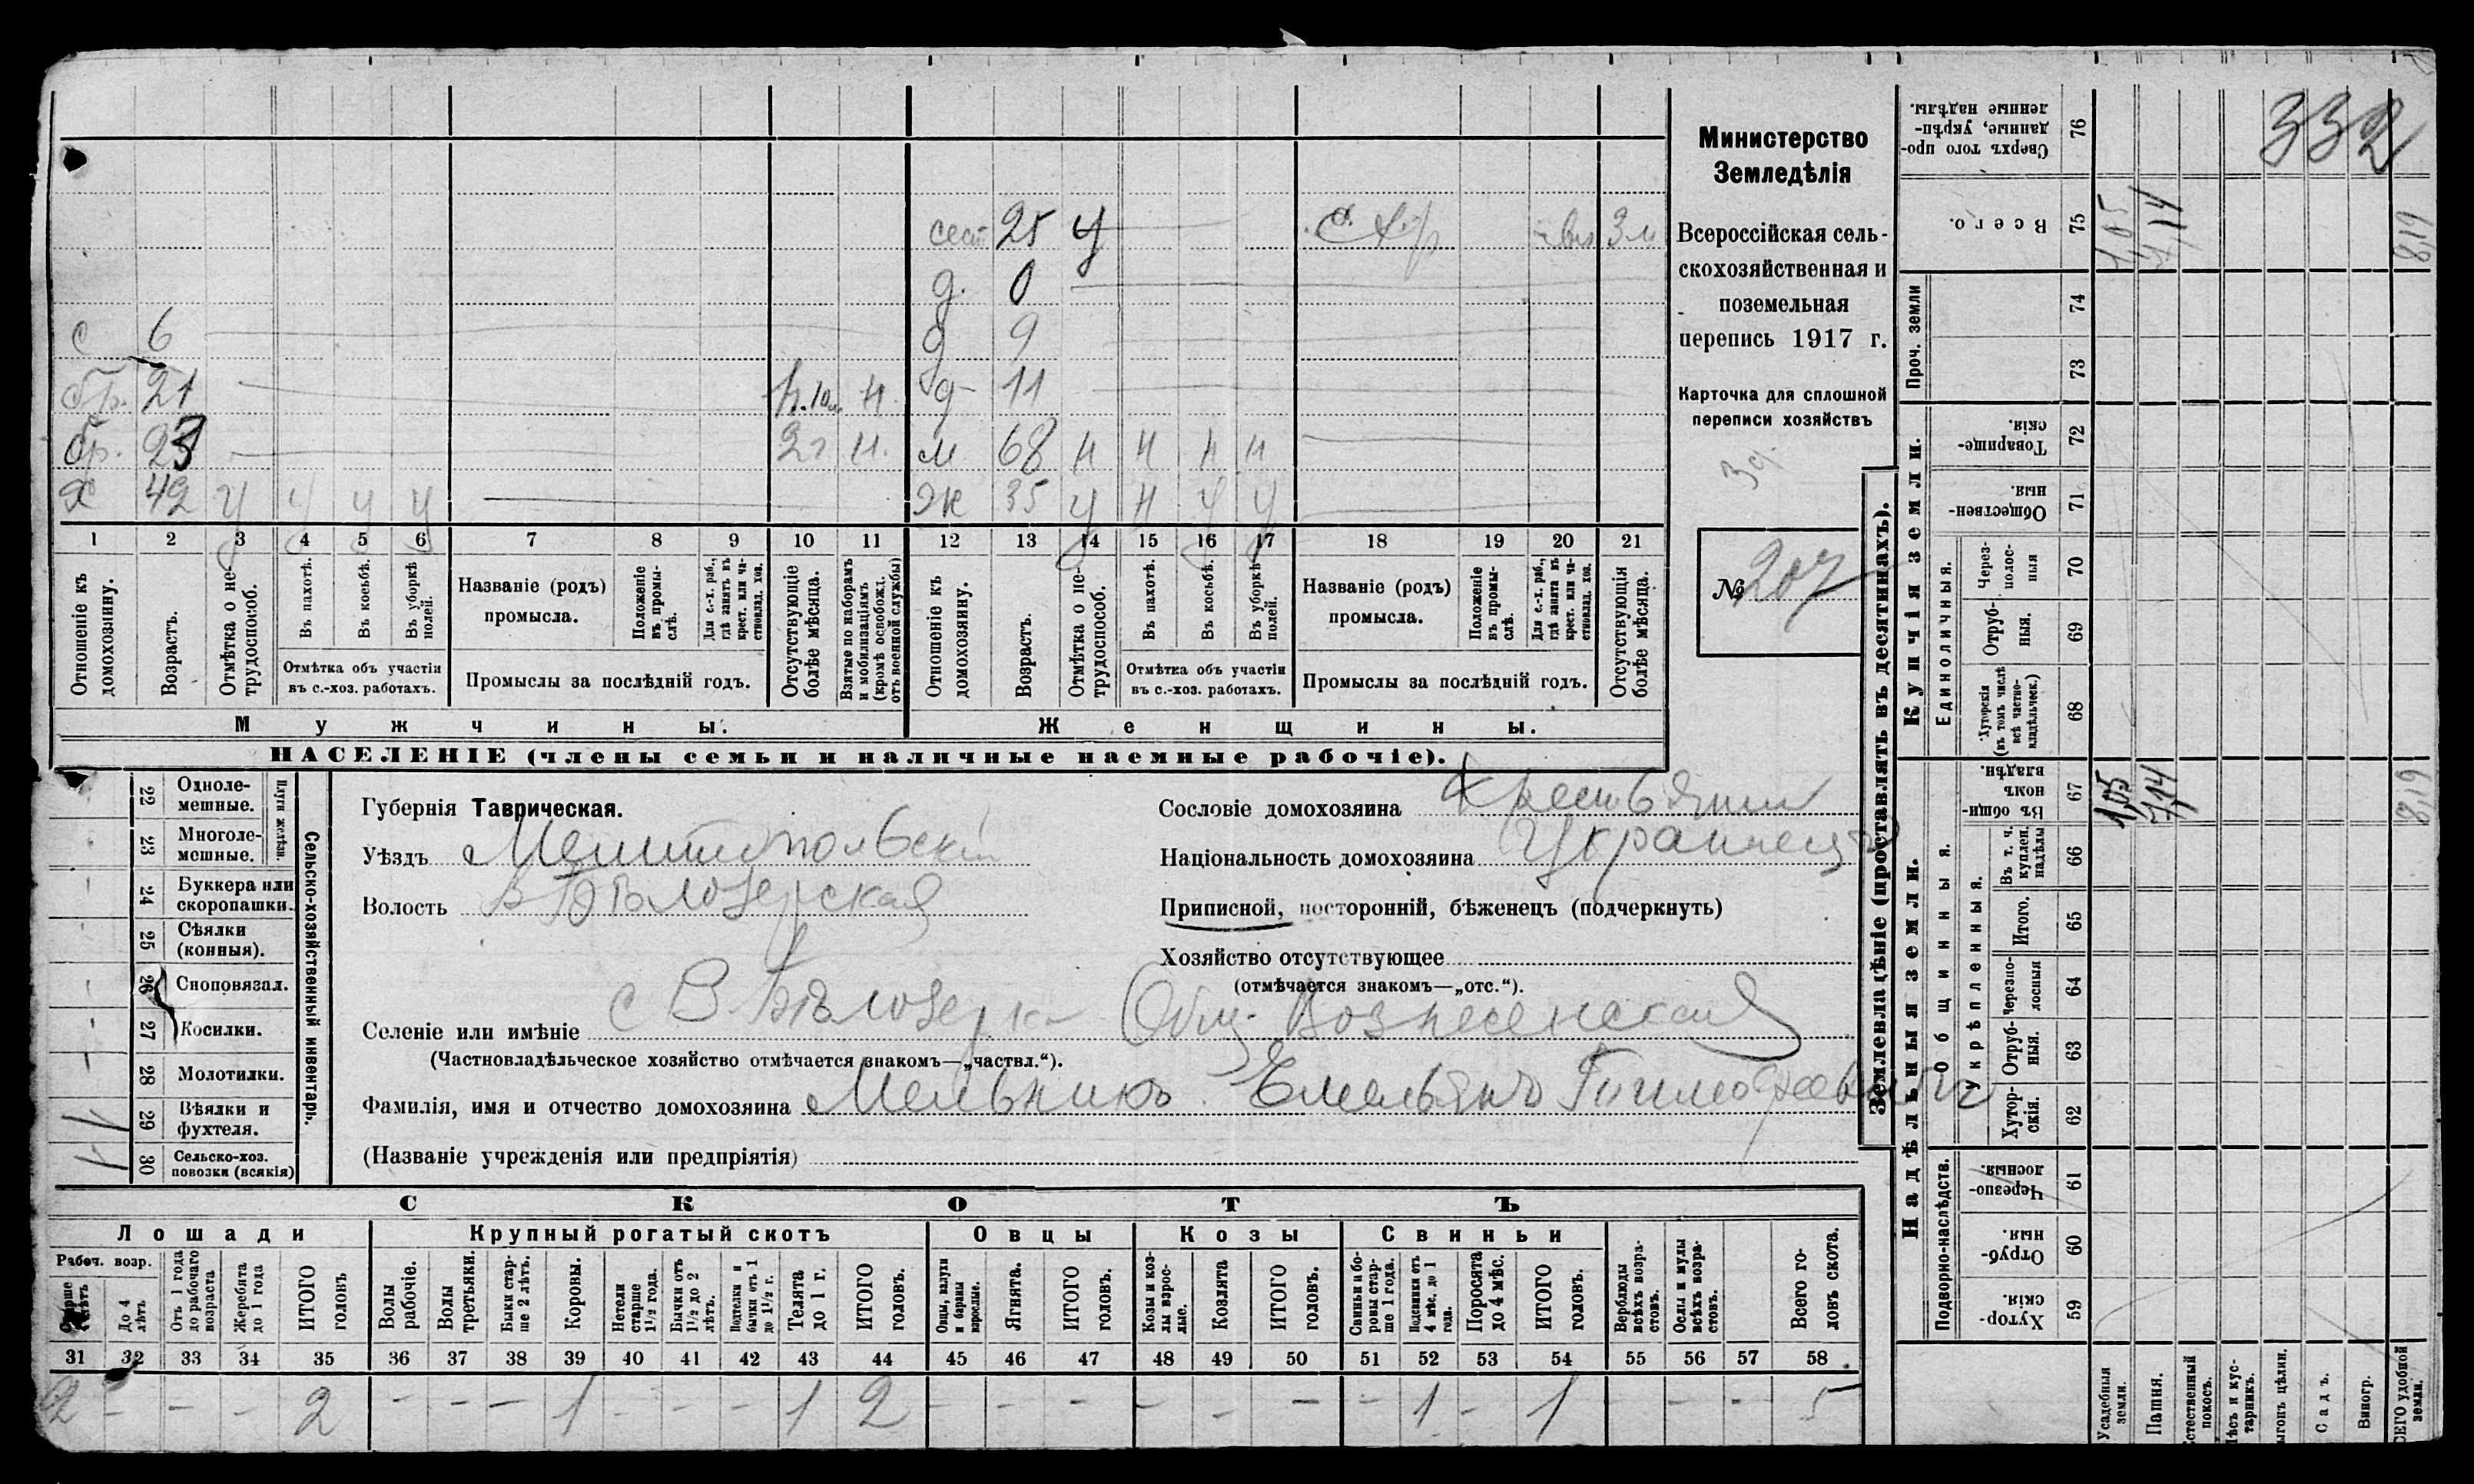 332
Министерство
Земледѣлія
Всероссійская сель-
скохозяйственная и
поземельная
перепись 1917 г.
Карточка для сплошной
переписи хозяйствъ
№ 207
сест 25 У 3 м
д. 0
с 6 д 9
бр. 21 н. д 11
бр. 23 2 г н. м 68 н н н н
х 42 у у у у ж 35 у н у у
1 2 3 4 5 6 7 8 9 10 11 12 13 14 15 16 17 18 19 20 21
Отношеніе къ домохозяину.
Возрастъ.
Отмѣтка о не-трудоспособ.
Въ пахотѣ.
Въ косьбѣ.
Въ уборкѣ полей.
Отмѣтка объ участіи
въ с.-хоз. работахъ.
Названіе (родъ)
промысла.
Положеніе въ промы-слѣ.
Для с.-х. раб., гдѣ занятъ въ крест. или ча-стновлад. хоз.
Промыслы за послѣдній годъ.
Отсутствующіе болѣе мѣсяца.
Взятые по наборамъ и мобилизаціямъ (кромѣ освобожд. отъ военной службы)
Отношеніе къ домохозяину.
Возрастъ.
Отмѣтка о не-трудоспособ.
Въ пахотѣ.
Въ косьбѣ.
Въ уборкѣ полей.
Отмѣтка объ участіи
въ с.-хоз. работахъ.
Названіе (родъ)
промысла.
Положеніе въ промы-слѣ.
Для с.-х. раб., гдѣ занята въ крест. или ча-стновлад. хоз.
Промыслы за послѣдній годъ.
Отсутствующія болѣе мѣсяца.
Мужчины. Женщины.
НАСЕЛЕНІЕ (члены семьи и наличные наемные рабочіе).
22 Одноле-мешные.
23 Многоле-мешные.
Плуги желѣзн.
24 Буккера или скоропашки.
25 Сѣялки (конныя).
26 Сноповязал.
27 Косилки.
28 Молотилки.
29 Вѣялки и фухтеля. 1
30 Сельско-хоз. повозки (всякія) 1
Сельско-хозяйственный инвентарь.
Губернія Таврическая.
Уѣздъ Мелитопольскій
Волость В Бѣлозерская
Сословіе домохозяина Крестьянин
Національность домохозяина Украинецъ
Приписной, посторонній, бѣженецъ (подчеркнуть)
Хозяйство отсутствующее
(отмѣчается знакомъ—„отс.“).
Селеніе или имѣніе с В. Бѣлозерка Общ. Вознесенская
(Частновладѣльческое хозяйство отмѣчается знакомъ—„частвл.“).
Фамилія, имя и отчество домохозяина Мельникъ Емельянъ Тимофеевич
(Названіе учрежденія или предпріятія)
СКОТЪ
Лошади Крупный рогатый скотъ Овцы Козы Свиньи
Рабоч. возр.
Старше 4 лѣтъ
До 4 лѣтъ
Отъ 1 года до рабочаго возраста
Жеребята до 1 года
ИТОГО головъ
Волы рабочіе.
Волы третьяки.
Быки стар-ше 2 лѣтъ.
Коровы.
Нетели старше 1½ года.
Бычки отъ 1½ до 2 лѣтъ.
Подтелки и бычки отъ 1 до 1½ г.
Телята до 1 г.
ИТОГО головъ.
Овцы, валухи и бараны взрослые.
Ягнята.
ИТОГО головъ.
Козы и коз-лы взрос-лые.
Козлята
ИТОГО головъ.
Свиньи и бо-ровы стар-ше 1 года.
Подсвинки отъ 4 мѣс. до 1 года.
Поросята до 4 мѣс.
ИТОГО головъ.
Верблюды всѣхъ возра-стовъ.
Ослы и мулы всѣхъ возра-стовъ.
Всего го-ловъ скота.
31 32 33 34 35 36 37 38 39 40 41 42 43 44 45 46 47 48 49 50 51 52 53 54 55 56 57 58
2 - - - 2 - - - 1 - - - 1 2 - - - - - - - 1 - 1 - - - 5
Землевладѣніе (проставлять въ десятинахъ).
Купчія земли.
Надѣльныя земли.
76 Сверхъ того про-данные, укрѣп-ленные надѣлы.
75 Всего. 1,05 7,14 8,19
Проч. земли
74
73
72 Товарище-скія.
71 Обществен-ныя.
Единоличныя.
70 Через-полос-ныя
69 Отруб-ныя.
68 Хуторскія (въ томъ числѣ всѣ частно-владѣльческ.)
67 Въ общи-номъ владѣн. 1,05 7,14 8,19
Общинныя.
Укрѣпленныя.
66 Въ т. ч. куплен. надѣлы
65 Итого.
64 Черезпо-лосныя
63 Отруб-ныя.
62 Хутор-скія.
Подворно-наслѣдств.
61 Черезпо-лосныя.
60 Отруб-ныя.
59 Хутор-скія.
Усадебныя земли.
Пашня.
Естественный покосъ.
Лѣсъ и кус-тарникъ.
Выгонъ цѣлин.
Садъ.
Виногр.
ВСЕГО удобной земли.